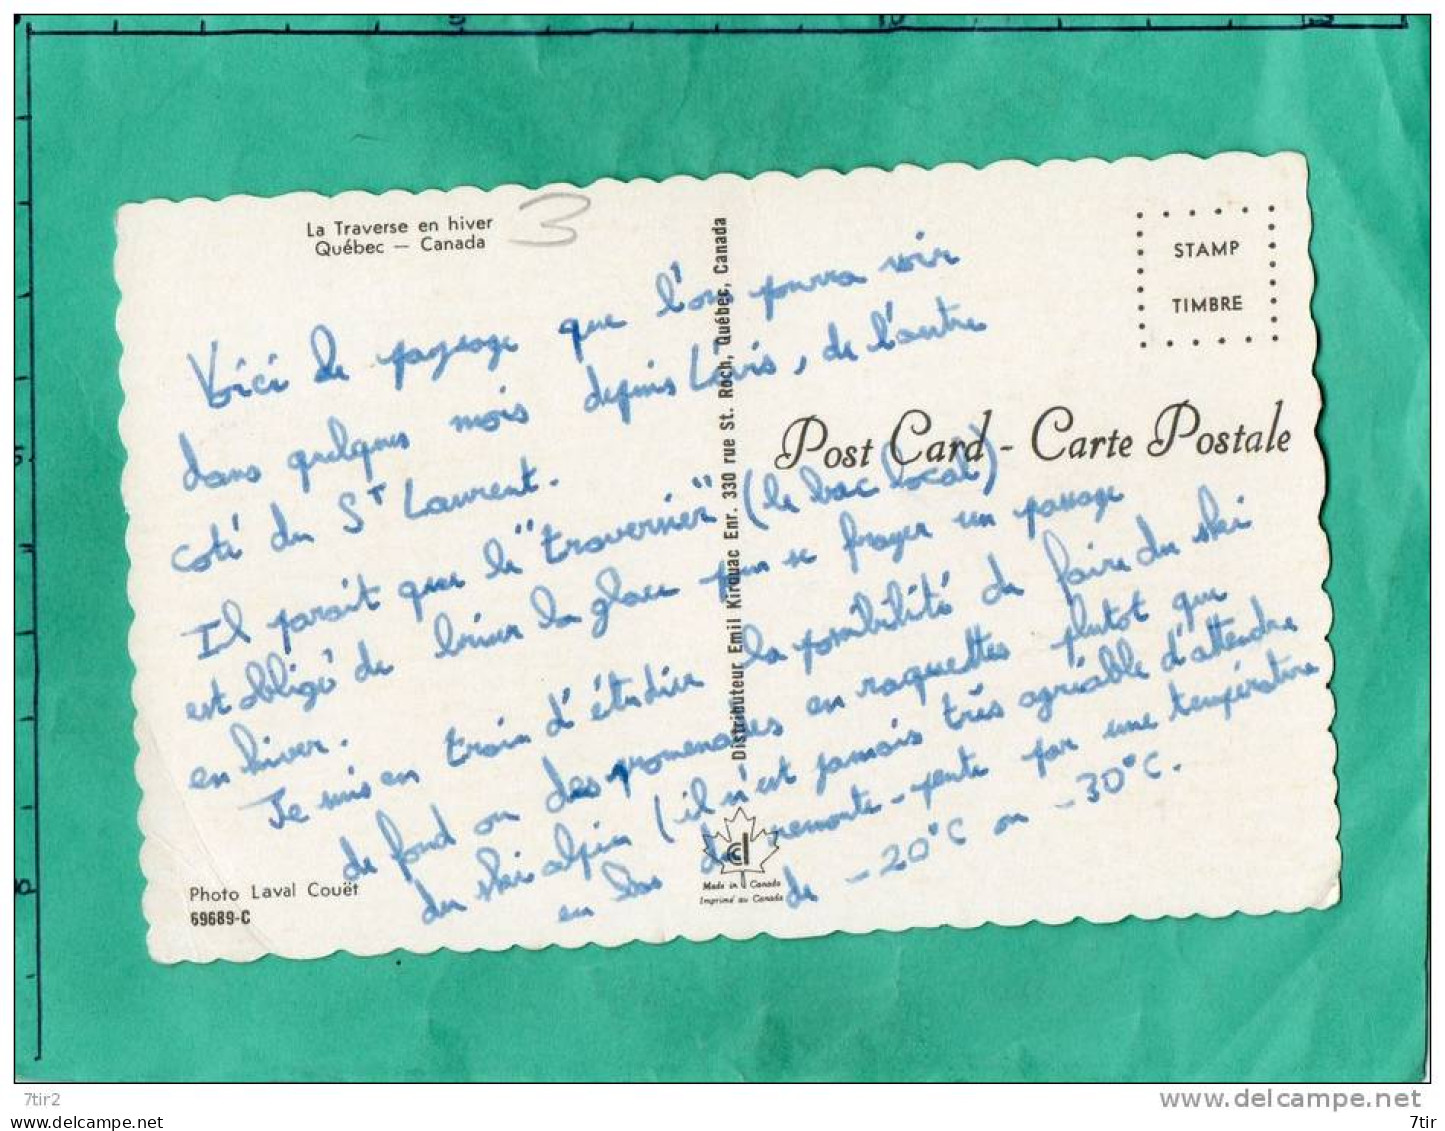 5 10 15
La Traverse en hiver
Québec — Canada
3
STAMP
TIMBRE
Post Card - Carte Postale
Voici le paysage que l'on pourra voir
dans quelques mois depuis Lévis, de l'autre
coté du St Laurent.
Il parait que le "traversier" (le bac local)
est obligé de briser la glace pour se frayer un passage
en hiver.
Je suis en train d'étudier la possibilité de faire du ski
de fond ou des promenades en raquettes plutot que
du ski alpin (il n'est jamais très agréable d'attendre
en bas du remonte-pente par une température
de -20°C ou -30°C.
Distributeur Emil Kirouac Enr. 330 rue St. Roch, Québec, Canada
Made in Canada
Imprimé au Canada
Photo Laval Couët
69689-C
www.delcampe.net
7tir2
www.delcampe.net
7tir